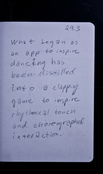 293
What began as
an app to inspire
dancing has
been distilled
into a clapping
game to inspire
rhythmical touch
and choreographed
interaction.